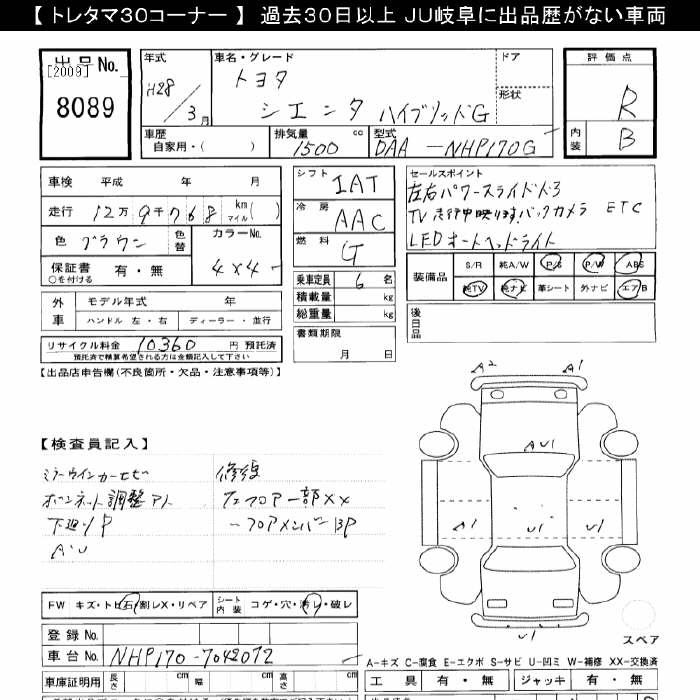 【 トレタマ30コーナー 】 過去30日以上 JU岐阜に出品歴がない車両
出品No.
[2009]
8089
年式
H28
/
3月
車名・グレード
トヨタ
シエンタ ハイブリッドG
ドア
形状
車歴
自家用・( )
排気量 cc
1500
型式
DAA -NHP170G
評価点
R
内装
B
車検 平成 年 月
走行 12万9千768 km マイル( )
色 ブラウン
色替
カラーNo.
4x4
保証書 有・無
○を付ける
外車
モデル年式 年
ハンドル 左・右
ディーラー・並行
リサイクル料金 10360 円 預託済
預託済で精算希望される方は金額記入して下さい
シフト
IAT
冷房
AAC
燃料
G
乗車定員 6 名
積載量 kg
総重量 kg
書類期限
月 日
セールスポイント
左右パワースライドドア
TV走行中映ります バックカメラ ETC
LEDオートヘッドライト
装備品
S/R 純A/W P/S P/W ABS
純TV 純ナビ 革シート 外ナビ エアB
後日品
【出品店申告欄(不良箇所・欠品・注意事項等)】
【検査員記入】
ミラーウインカーヒビ
ボンネット調整アト
下廻りP
AU
修復
フロアー部XX
ーフロアメンバーBP
A2
A1
AU1
A1
U1
U1
U1
スペア
FW キズ・トビ石・割レX・リペア
シート内装 コゲ・穴・汚レ・破レ
登録No.
車台No. NHP170-7042072
車庫証明用 長さ cm 幅 cm 高さ cm
A-キズ C-腐食 E-エクボ S-サビ U-凹ミ W-補修 XX-交換済
工具 有・無 ジャッキ 有・無